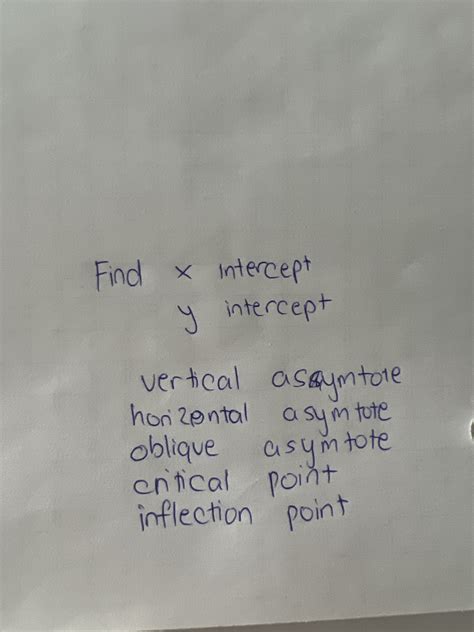 Find x intercept
y intercept
vertical assymtote
horizontal asymtote
oblique asymtote
critical point
inflection point